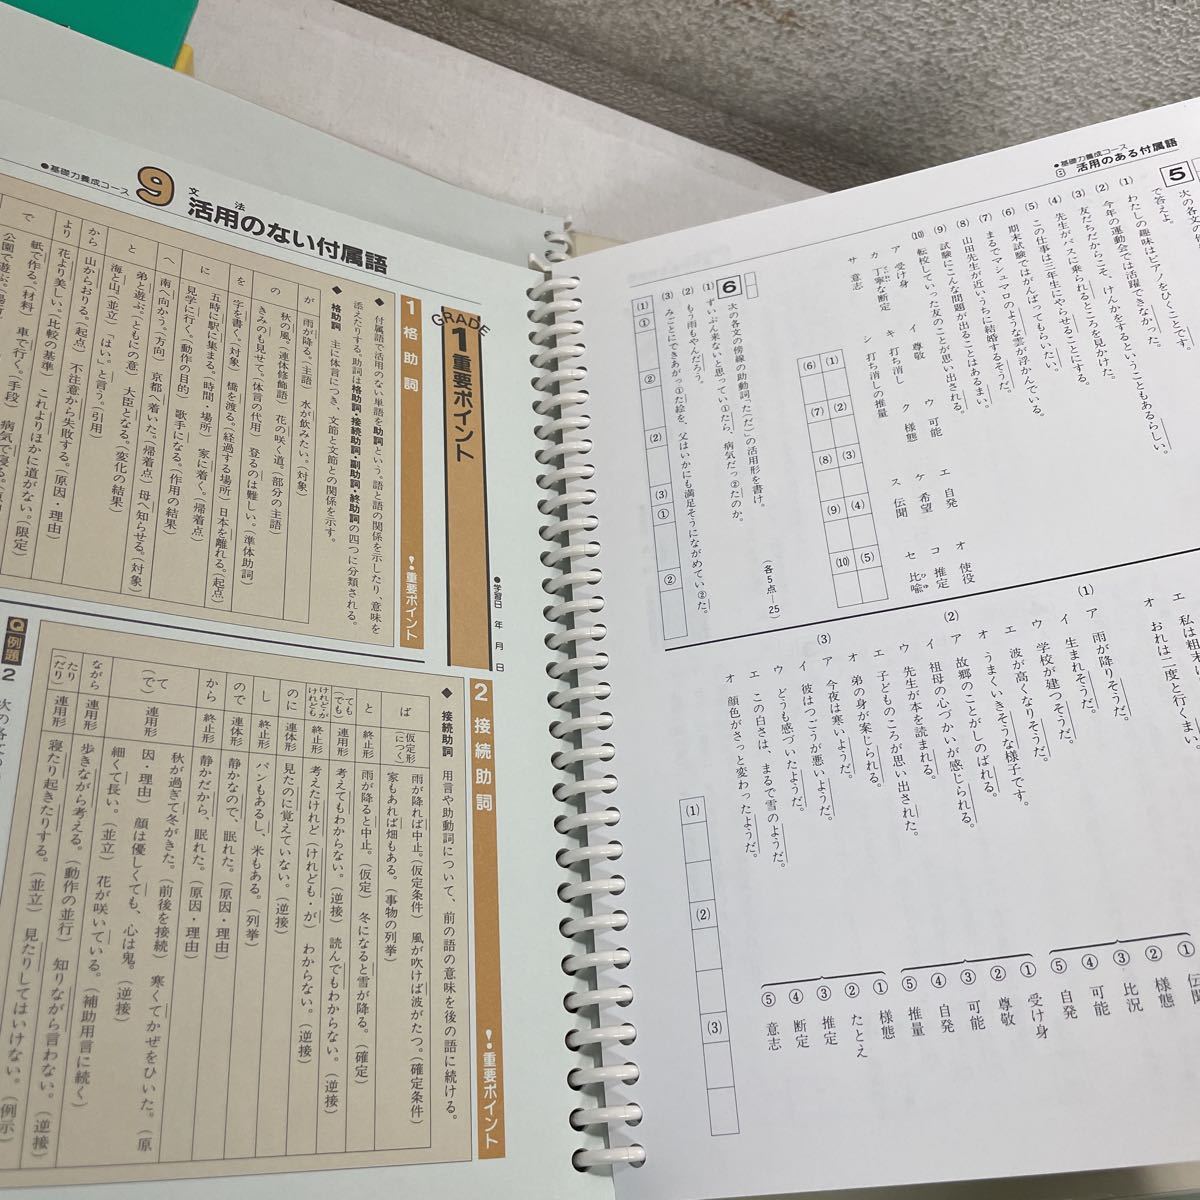 ●基礎力養成コース
8 活用のある付属語
5
次の各文の
で答えよ。
(1) わたしの趣味はピアノをひくことです。
(2) 今年の運動会では活躍できなかった。
(3) 友だちだからこそ、けんかをするということもあるらしい。
(4) 先生がバスに乗られるところを見かけた。
(5) この仕事は三年生にやらせることにする。
(6) 期末試験ではがんばってもらいたい。
(7) まるでマシュマロのような雲が浮かんでいる。
(8) 山田先生が近いうちに結婚するそうだ。
(9) 試験にこんな問題が出ることはあるまい。
(10) 転校していった友のことが思い出される。
ア 受け身 イ 尊敬 ウ 可能 エ 自発 オ 使役
カ 丁寧な断定 キ 打ち消し ク 様態 ケ 希望 コ 推定
サ 意志 シ 打ち消しの推量 ス 伝聞 セ 比喩
(1) (2) (3) (4) (5)
(6) (7) (8) (9) (10)
6
次の各文の傍線の助動詞「た(だ)」の活用形を書け。
(各5点—25)
(1) ずいぶん来ないと思ってい①たら、病気だっ②たのか。
(2) もう雨もやんだろう。
(3) みごとにできあがっ①た絵を、父はいかにも満足そうにながめてい②た。
(1) ① ② (2) (3) ① ②
エ 私は粗末に
オ おれは二度と行くまい
(1)
ア 雨が降りそうだ。
イ 生まれそうだ。
ウ 学校が建つそうだ。
エ 波が高くなりそうだ。
オ うまくいきそうな様子です。
(2)
ア 故郷のことがしのばれる。
イ 祖母の心づかいが感じられる。
ウ 先生が本を読まれる。
エ 子どものころが思い出された。
オ 弟の身が案じられる。
(3)
ア 今夜は寒いようだ。
イ 彼はつごうが悪いようだ。
ウ どうも感づいたようだ。
エ この白さは、まるで雪のようだ。
オ 顔色がさっと変わったようだ。
① 伝聞
② 様態
③ 比況
④ 可能
⑤ 自発
① 受け身
② 尊敬
③ 可能
④ 自発
⑤ 推量
① 様態
② たとえ
③ 推定
④ 断定
⑤ 意志
(1) (2) (3)
●基礎力養成コース
9 文法
活用のない付属語
GRADE 1 重要ポイント
●学習日 年 月 日
1 格助詞
!重要ポイント
◆ 付属語で活用のない単語を助詞という。語と語の関係を示したり、意味を
添えたりする。助詞は格助詞・接続助詞・副助詞・終助詞の四つに分類される。
◆ 格助詞 主に体言につき、文節と文節との関係を示す。
が 雨が降る。(主語) 水が飲みたい。(対象)
の 秋の風。(連体修飾語) 花の咲く道。(部分の主語)
きみのも見せて。(体言の代用) 登るのは難しい。(準体助詞)
を 字を書く。(対象) 橋を渡る。(経過する場所) 日本を離れる。(起点)
に 五時に駅に集まる。(時間 場所) 家に着く。(帰着点)
見学に行く。(動作の目的) 歌手になる。(作用の結果)
へ 南へ向かう。(方向) 京都へ着いた。(帰着点) 母へ知らせる。(対象)
と 弟と遊ぶ。(ともにの意) 大臣となる。(変化の結果)
海と山。(並立) 「はい。」と言う。(引用)
から 山からおりる。(起点) 不注意から失敗する。(原因・理由)
より 花より美しい。(比較の基準) これよりほかに道がない。(限定)
で 紙で作る。(材料) 車で行く。(手段) 病気で寝る。
公園で遊ぶ。
2 接続助詞
!重要ポイント
◆ 接続助詞 用言や助動詞について、前の語の意味を後の語に続ける。
ば 仮定形(につく) 雨が降れば中止。(仮定条件) 風が吹けば波がたつ。(確定条件)
家もあれば畑もある。(事物の列挙)
と 終止形 雨が降ると中止。(仮定) 冬になると雪が降る。(確定)
ても(でも) 連用形 考えてもわからない。(逆接) 読んでもわからない。(逆接)
けれど・が けれども 終止形 考えたけれど(けれども・が) わからない。(逆接)
のに 連体形 見たのに覚えていない。(逆接)
し 終止形 パンもあるし、米もある。(列挙)
ので 連体形 静かなので、眠れた。(原因・理由)
から 終止形 静かだから、眠れた。(原因・理由)
て(で) 連用形 秋が過ぎて冬がきた。(前後を接続) 寒くてかぜをひいた。(原
因・理由) 顔は優しくても、心は鬼。(逆接)
細くて長い。(並立) 花が咲いている。(補助用言に続く)
ながら 連用形 歩きながら考える。(動作の並行) 知りながら言わない。(逆接)
たり(だり) 連用形 寝たり起きたりする。(並立) 見たりしてはいけない。(例示)
Q 例題 2